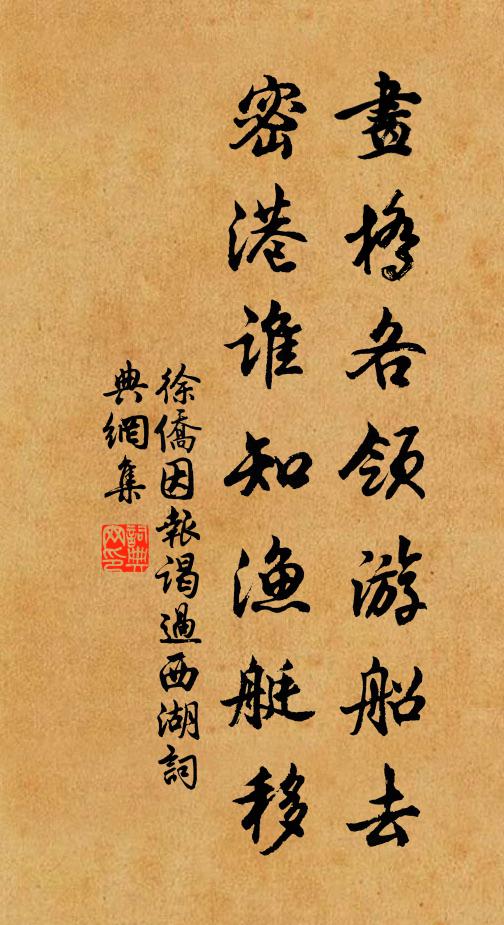 畫橋各領游船去
密港誰知漁艇移
徐僑因報謁過西湖詞
典網集
詞典
网印